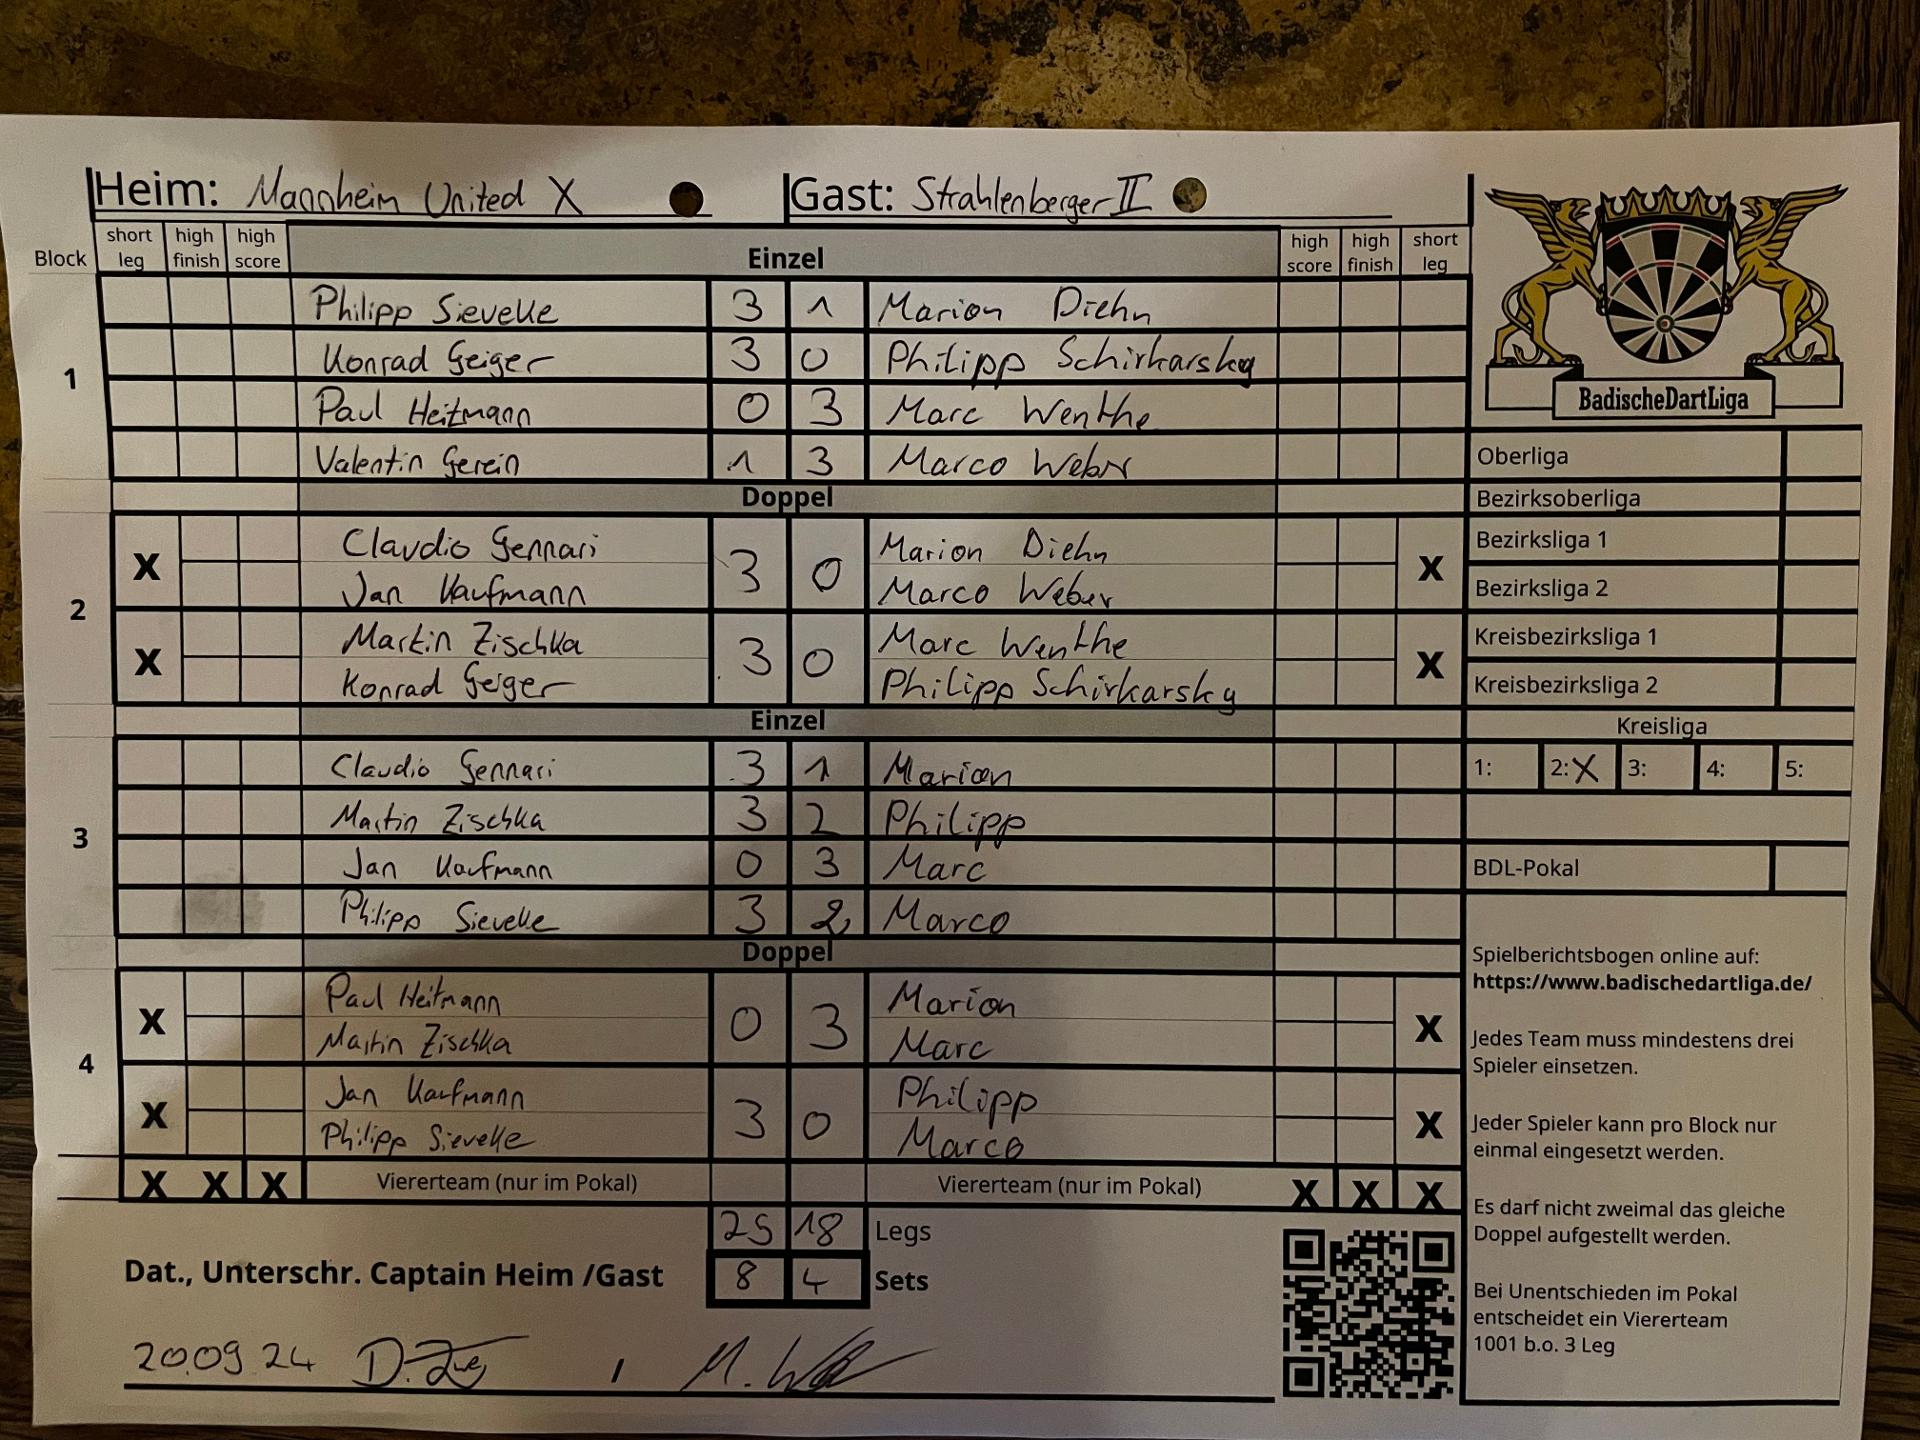 Heim: Mannheim United X Gast: Strahlenberger II
Block short leg high finish high score Einzel high score high finish short leg
1
Philipp Sievelke 3 1 Marion Diehn
Konrad Geiger 3 0 Philipp Schirkarsky
Paul Heitmann 0 3 Marc Wenthe
Valentin Gerein 1 3 Marco Weber
Doppel
2
X Claudio Gennari 3 0 Marion Diehn X
Jan Kaufmann Marco Weber
X Martin Zischka 3 0 Marc Wenthe X
Konrad Geiger Philipp Schirkarsky
Einzel
3
Claudio Gennari 3 1 Marion
Martin Zischka 3 2 Philipp
Jan Kaufmann 0 3 Marc
Philipp Sievelke 3 2 Marco
Doppel
4
X Paul Heitmann 0 3 Marion X
Martin Zischka Marc
X Jan Kaufmann 3 0 Philipp X
Philipp Sievelke Marco
X X X Viererteam (nur im Pokal) Viererteam (nur im Pokal) X X X
25 18 Legs
Dat., Unterschr. Captain Heim /Gast 8 4 Sets
20.09.24 /
BadischeDartLiga
Oberliga
Bezirksoberliga
Bezirksliga 1
Bezirksliga 2
Kreisbezirksliga 1
Kreisbezirksliga 2
Kreisliga
1: 2: X 3: 4: 5:
BDL-Pokal
Spielberichtsbogen online auf:
https://www.badischedartliga.de/
Jedes Team muss mindestens drei
Spieler einsetzen.
Jeder Spieler kann pro Block nur
einmal eingesetzt werden.
Es darf nicht zweimal das gleiche
Doppel aufgestellt werden.
Bei Unentschieden im Pokal
entscheidet ein Viererteam
1001 b.o. 3 Leg